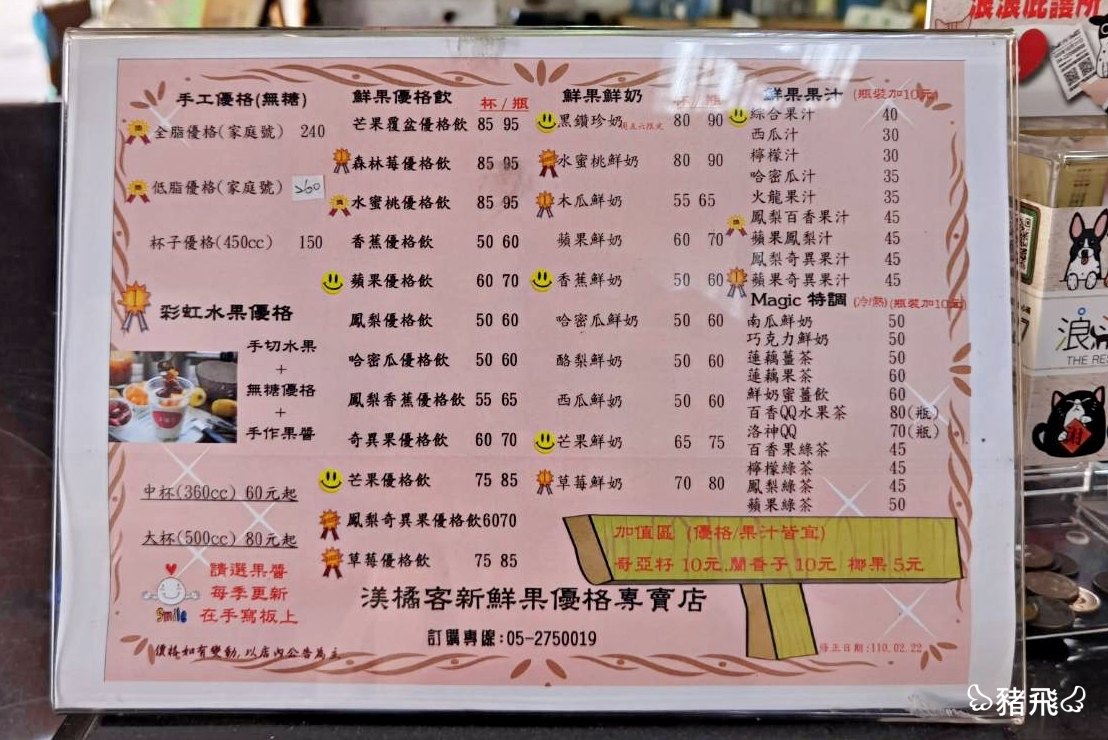 手工優格(無糖)
全脂優格(家庭號) 240
低脂優格(家庭號) 260
杯子優格(450cc) 150
彩虹水果優格
手切水果
+
無糖優格
+
手作果醬
中杯(360cc) 60元起
大杯(500cc) 80元起
請選果醬
每季更新
在手寫板上
Smile
價格如有變動,以店內公告為主
鮮果優格飲 杯/瓶
芒果覆盆優格飲 85 95
森林莓優格飲 85 95
水蜜桃優格飲 85 95
香蕉優格飲 50 60
蘋果優格飲 60 70
鳳梨優格飲 50 60
哈密瓜優格飲 50 60
鳳梨香蕉優格飲 55 65
奇異果優格飲 60 70
芒果優格飲 75 85
鳳梨奇異果優格飲6070
草莓優格飲 75 85
鮮果鮮奶 杯/瓶
黑鑽珍奶 80 90
水蜜桃鮮奶 80 90
木瓜鮮奶 55 65
蘋果鮮奶 60 70
香蕉鮮奶 50 60
哈密瓜鮮奶 50 60
酪梨鮮奶 50 60
西瓜鮮奶 50 60
芒果鮮奶 65 75
草莓鮮奶 70 80
鮮果果汁 (瓶裝加10元)
綜合果汁 40
西瓜汁 30
檸檬汁 30
哈密瓜汁 35
火龍果汁 35
鳳梨百香果汁 45
蘋果鳳梨汁 45
鳳梨奇異果汁 45
蘋果奇異果汁 45
Magic 特調 (冷/熱)(瓶裝加10元)
南瓜鮮奶 50
巧克力鮮奶 50
蓮藕薑茶 50
蓮藕果茶 60
鮮奶蜜薑飲 60
百香QQ水果茶 80(瓶)
洛神QQ 70(瓶)
百香果綠茶 45
檸檬綠茶 45
鳳梨綠茶 45
蘋果綠茶 50
加值區 (優格/果汁皆宜)
奇亞籽 10元.蘭香子 10元 椰果 5元
渼橘客新鮮果優格專賣店
訂購專線:05-2750019
修正日期:110.02.22
浪浪庇護所
浪
THE RE
豬飛